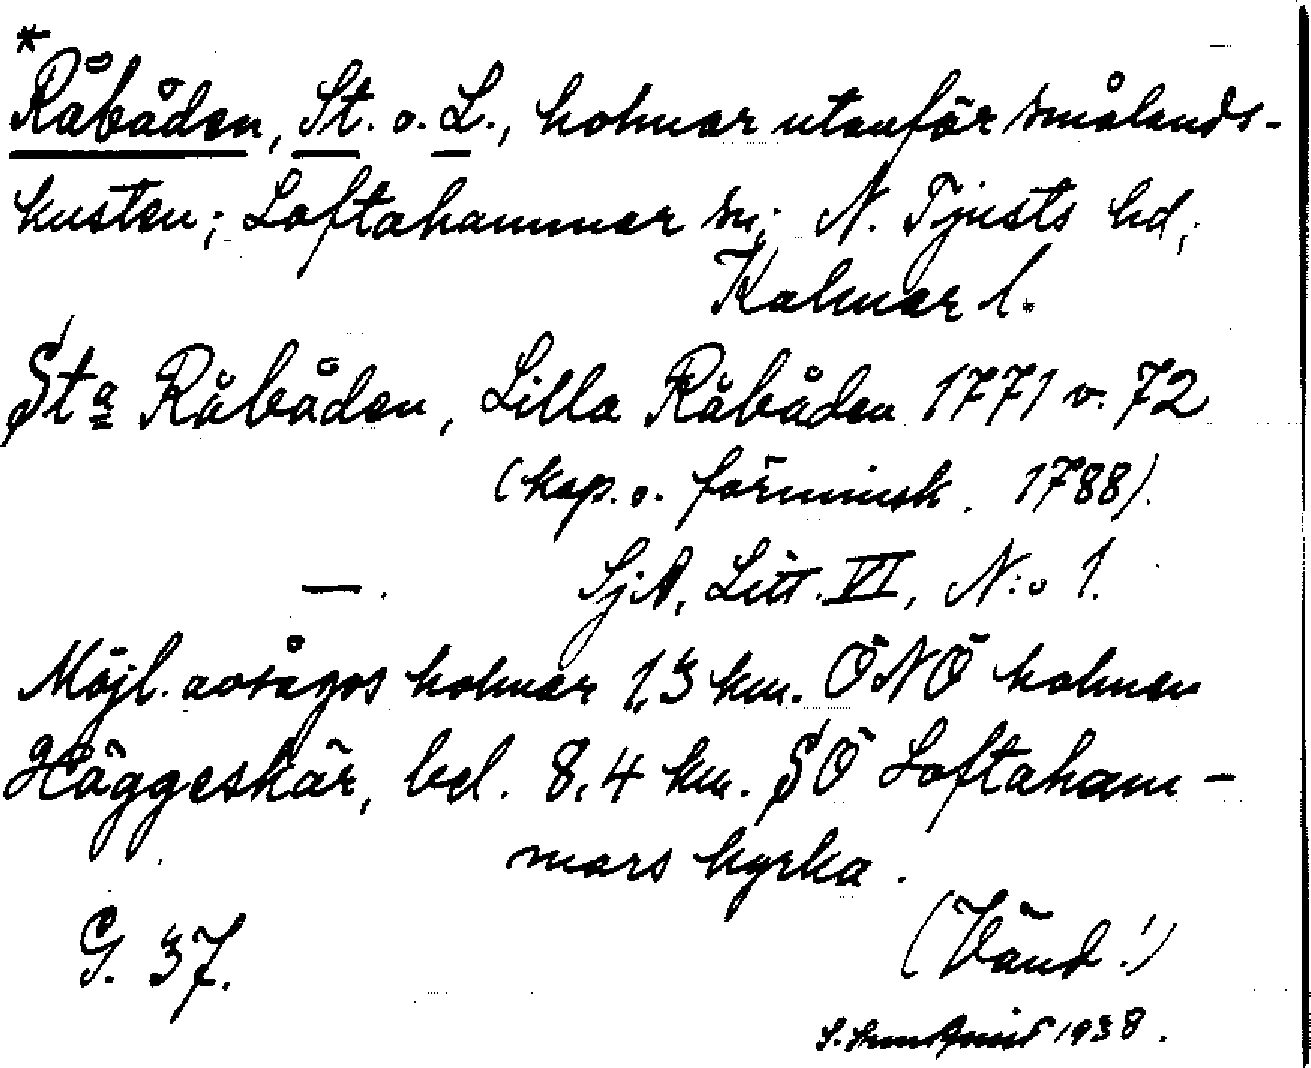 *
Råbåden, St. o. L., holmar utanför smålands-
kusten; Loftahammar sn; N. Tjusts hd;
Kalmar l.
Sta Råbåden, Lilla Råbåden 1771 o. 72
(kop. o. förminsk. 1788).
— . SjA, Litt. VI, N:o 1.
Möjl. avsågos holmar 1,3 km. ÖNÖ holmen
Häggeskär, bel. 8,4 km. SÖ Loftaham-
mars kyrka.
G. 37. (Vänd!)
1938.